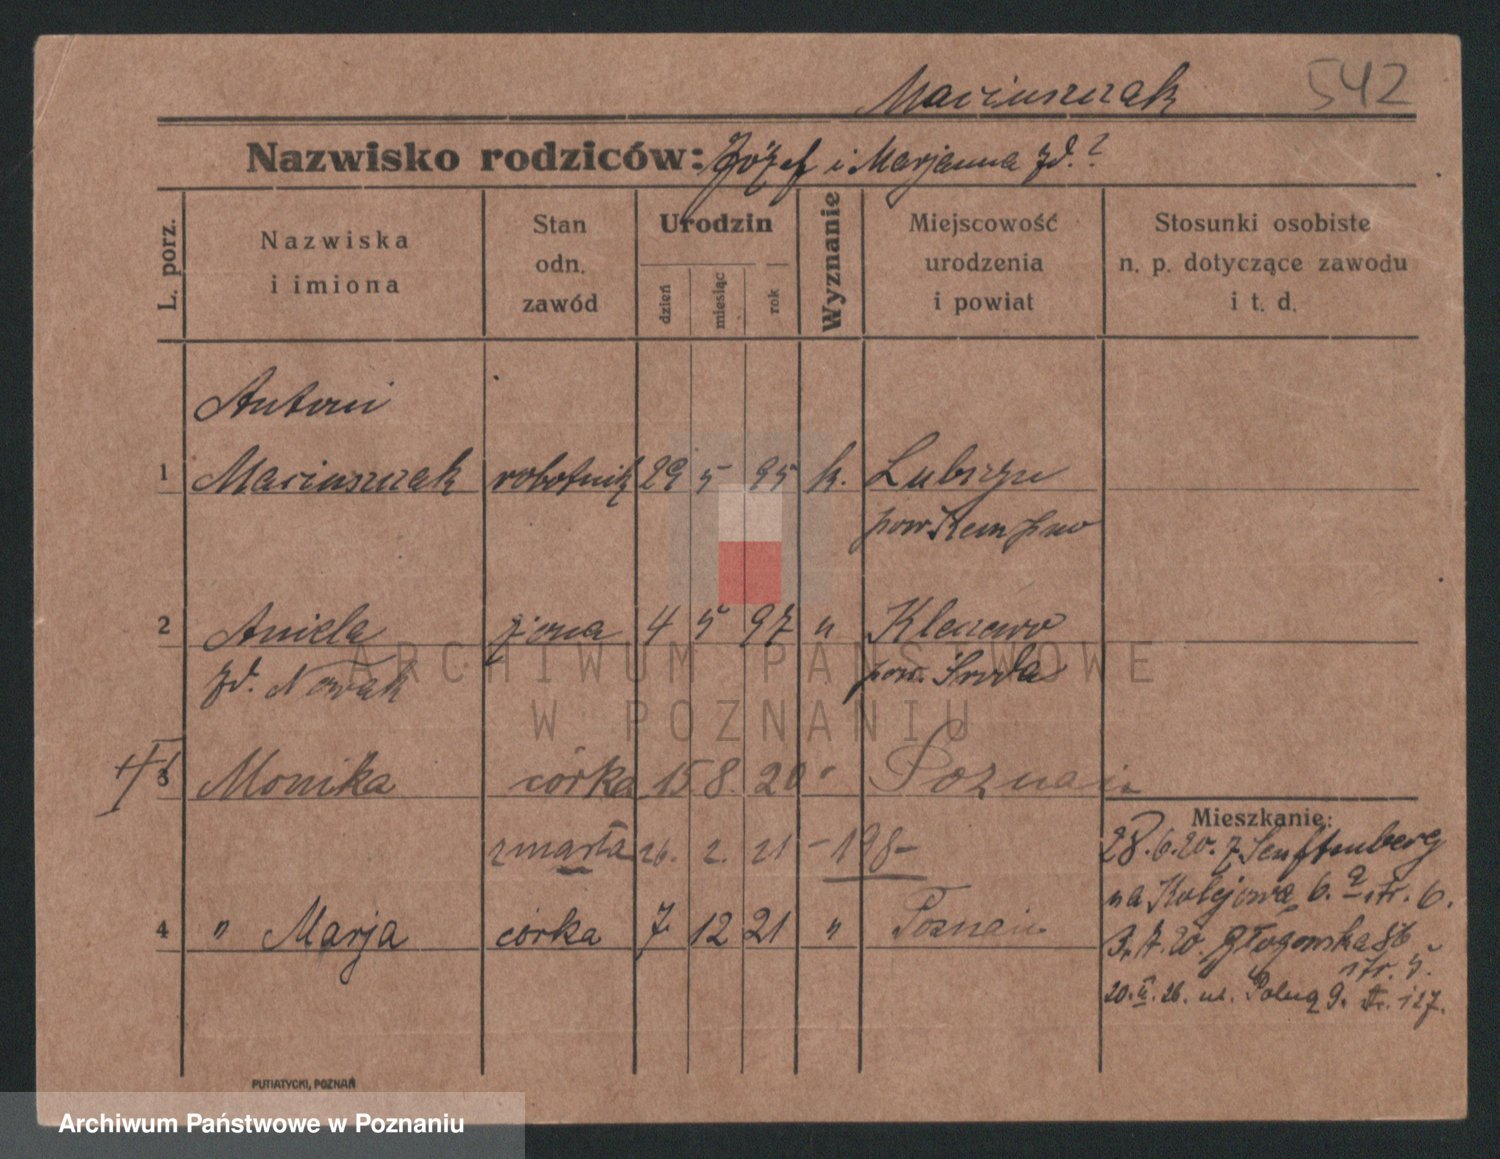 Maciuszczak 542
Nazwisko rodziców: Józef i Marjanna zd. ?
L. porz.
Nazwiska
i imiona
Stan
odn.
zawód
Urodzin
dzień
miesiąc
rok
Wyznanie
Miejscowość
urodzenia
i powiat
Stosunki osobiste
n. p. dotyczące zawodu
i t. d.
Antoni
1 Maciuszczak robotnik 29 5 95 k.
pow. Kempno
2 Aniela żona 4 5 97 "
zd. Nowak pow. Środa
3 Monika córka 15 8. 20 " Poznań
zmarła 26. 2. 21 - 198 -
4 " Marja córka 7. 12 21 " Poznań
Mieszkanie:
28.6.20. z Senftenberg
na Kolejowa 6. a str. 6.
Głogowska 86
str. 5.
20.II.26. ul. Polną 9. str. 127.
PUTIATYCKI, POZNAŃ
ARCHIWUM PAŃSTWOWE
W POZNANIU
Archiwum Państwowe w Poznaniu